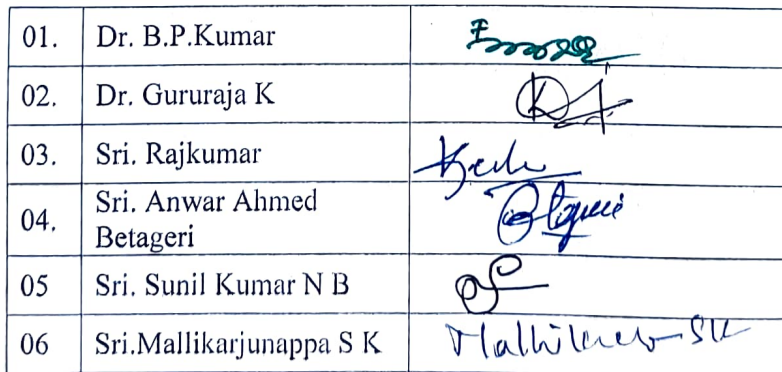 01. Dr. B.P.Kumar
02. Dr. Gururaja K
03. Sri. Rajkumar
04. Sri. Anwar Ahmed
Betageri
05 Sri. Sunil Kumar N B
06 Sri.Mallikarjunappa S K